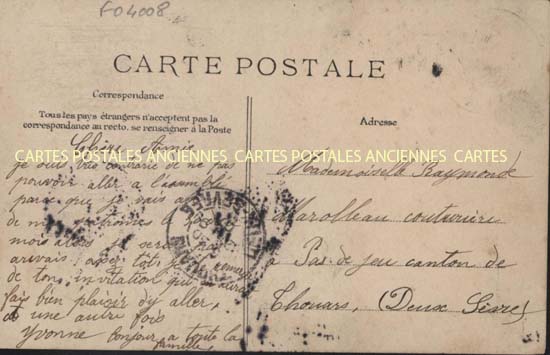 F04008
CARTE POSTALE
Correspondance
Tous les pays étrangers n'acceptent pas la
correspondance au recto. se renseigner à la Poste
Adresse
Chère Amie
CARTES POSTALES ANCIENNES CARTES POSTALES ANCIENNES CARTES POSTALES ANCIENNES
je suis très contrarié de ne pas
pouvoir aller à l'assemblé
parce que je vais
de nos
mois alors je serai
avec toi je
de ton invitation qui
fais bien plaisir d'y aller,
à une autre fois
Yvonne bonjour a toute la
famille
Mademoiselle Raymonde
Marolleau couturière
à Pas de jeu canton de
Thouars, (Deux Sèvres)